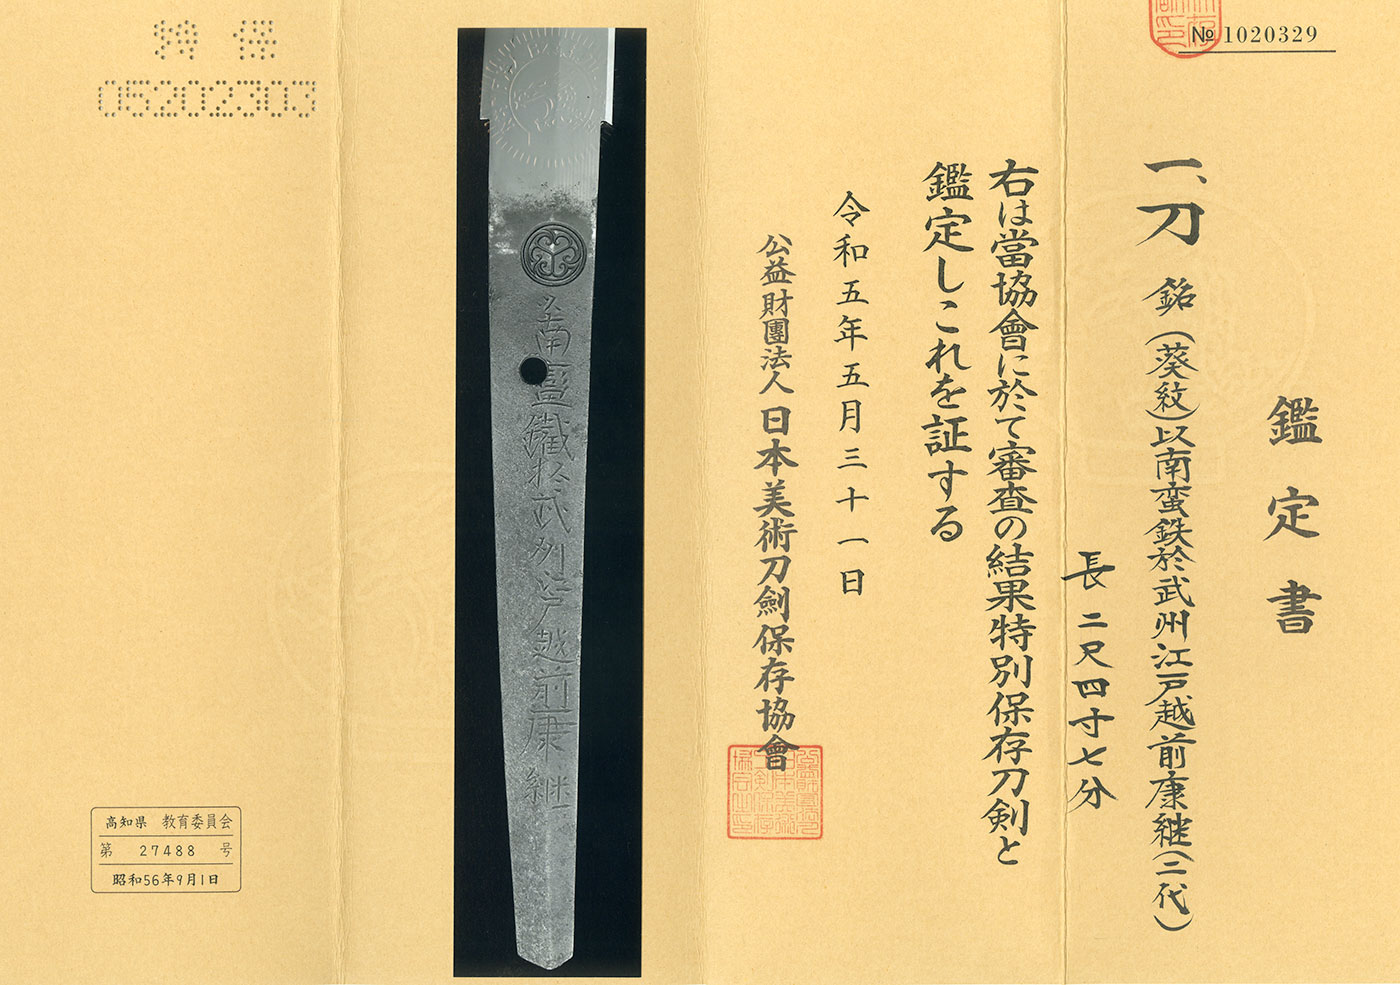 № 1020329
鑑定書
一、刀 銘(葵紋)以南蛮鉄於武州江戸越前康継(二代)
長二尺四寸七分
右は當協會に於て審査の結果特別保存刀剣と
鑑定しこれを証する
令和五年五月三十一日
公益財團法人日本美術刀劍保存協會
以南蠻鐵於武州江戸越前康継
特保
05202303
高知県 教育委員会
第 27488 号
昭和56年9月1日